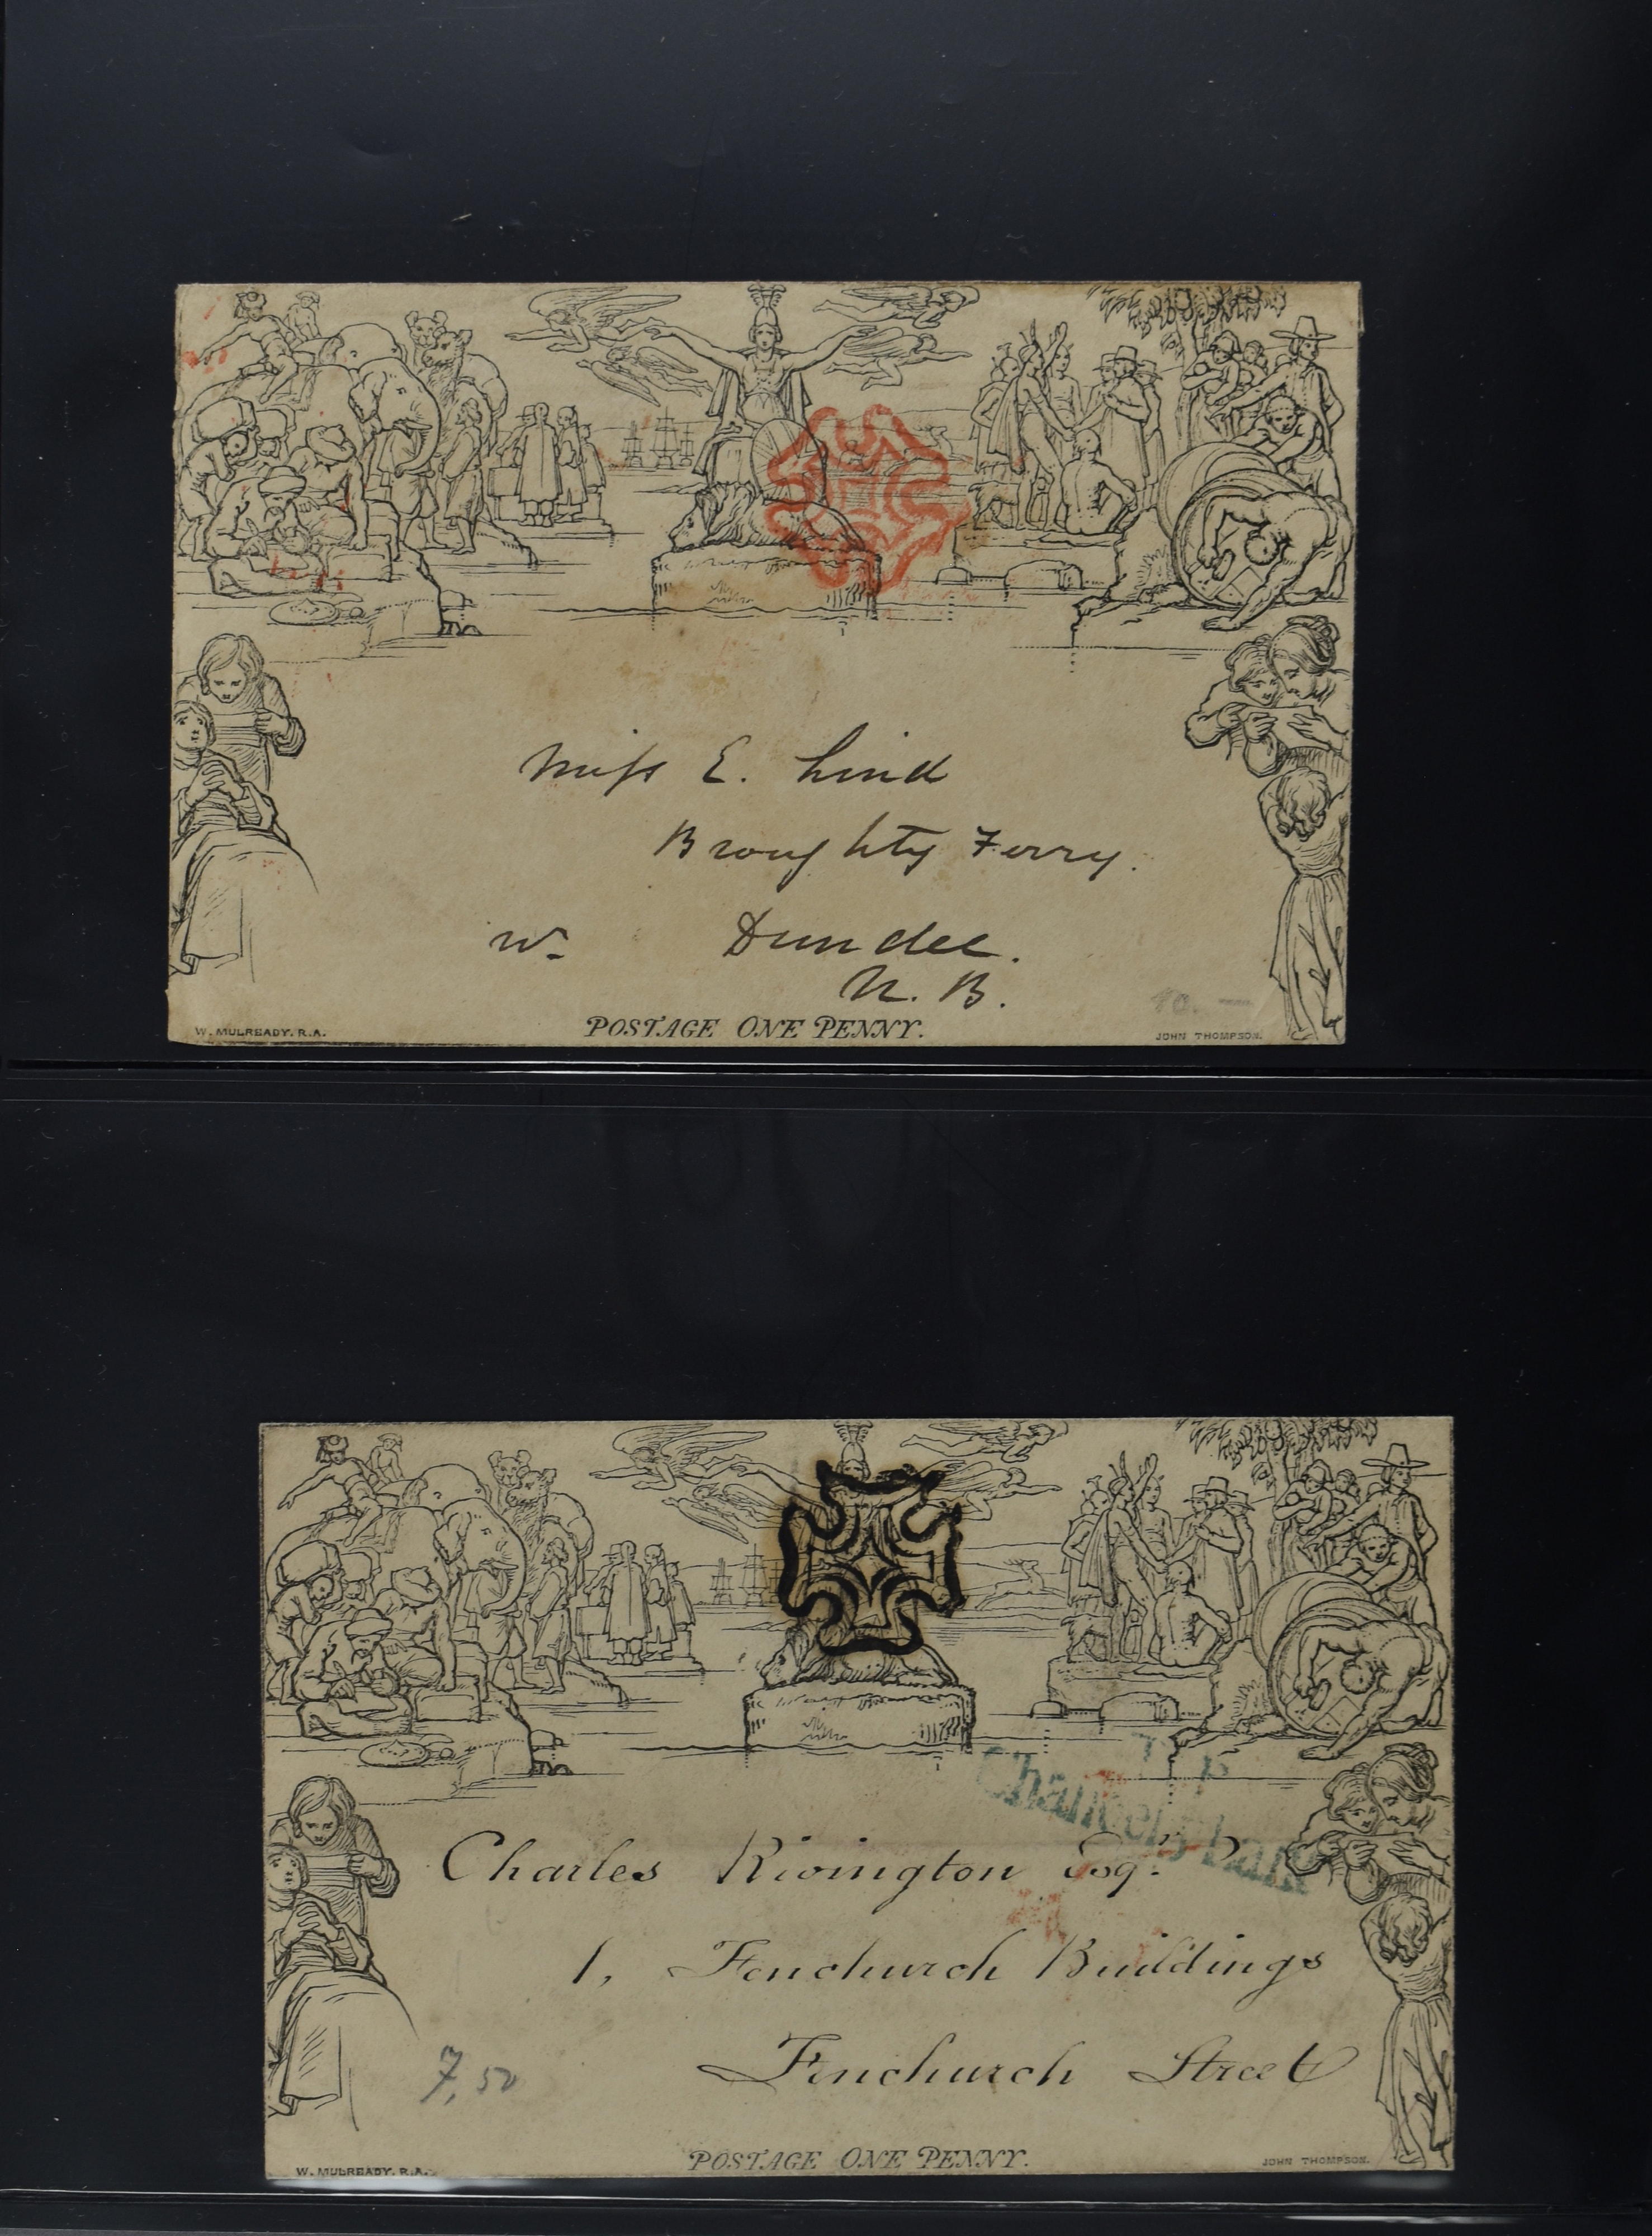 Miss E. Lind
Broughty Ferry.
W. Dundee.
N. B.
10. —
W. MULREADY. R.A.
POSTAGE ONE PENNY.
JOHN THOMPSON.
T. P
Chancery Lane
Charles Rivington Esqr.
1, Fenchurch Buildings
Fenchurch Street
7,50
W. MULREADY. R.A.
POSTAGE ONE PENNY.
JOHN THOMPSON.